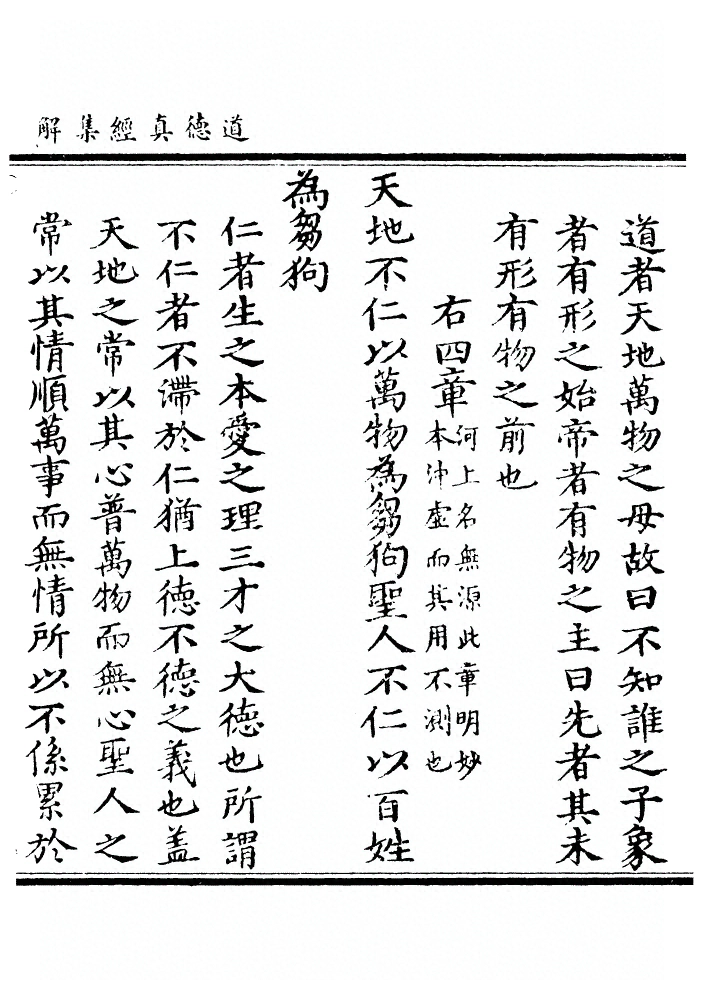 道德真經集解
道者天地萬物之母故曰不知誰之子象
者有形之始帝者有物之主曰先者其未
有形有物之前也
右四章河上名無源此章明妙
本沖虛而其用不測也
天地不仁以萬物為芻狗聖人不仁以百姓
為芻狗
仁者生之本愛之理三才之大德也所謂
不仁者不滯於仁猶上德不德之義也盖
天地之常以其心普萬物而無心聖人之
常以其情順萬事而無情所以不係累於